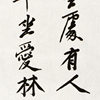 生處有人
坐愛林